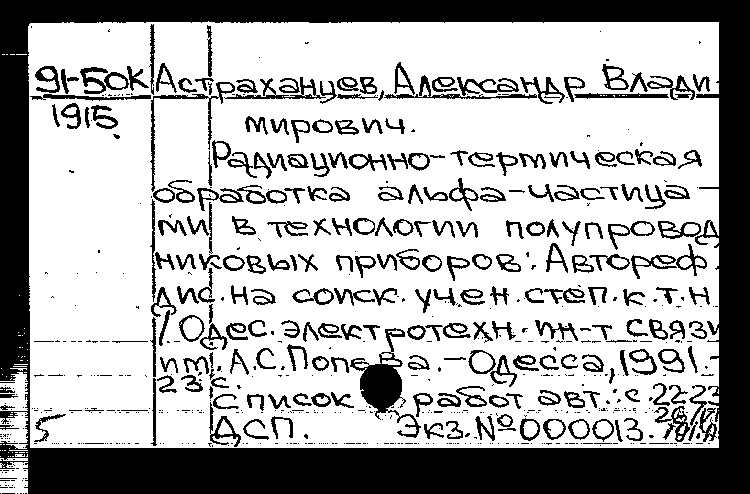 91-50К Астраханцев, Александр Влади-
1915. мирович.
Радиационно-термическая
обработка альфа-частица-
ми в технологии полупровод
никовых приборов: Автореф.
дис. на соиск. учен. степ. к.т.н
/ Одес. электротехн. ин-т связи
им. А.С.Попова.-Одесса, 1991.-
23 с.
Список работ авт.: с. 22-23
5 ДСП. Экз.№000013.